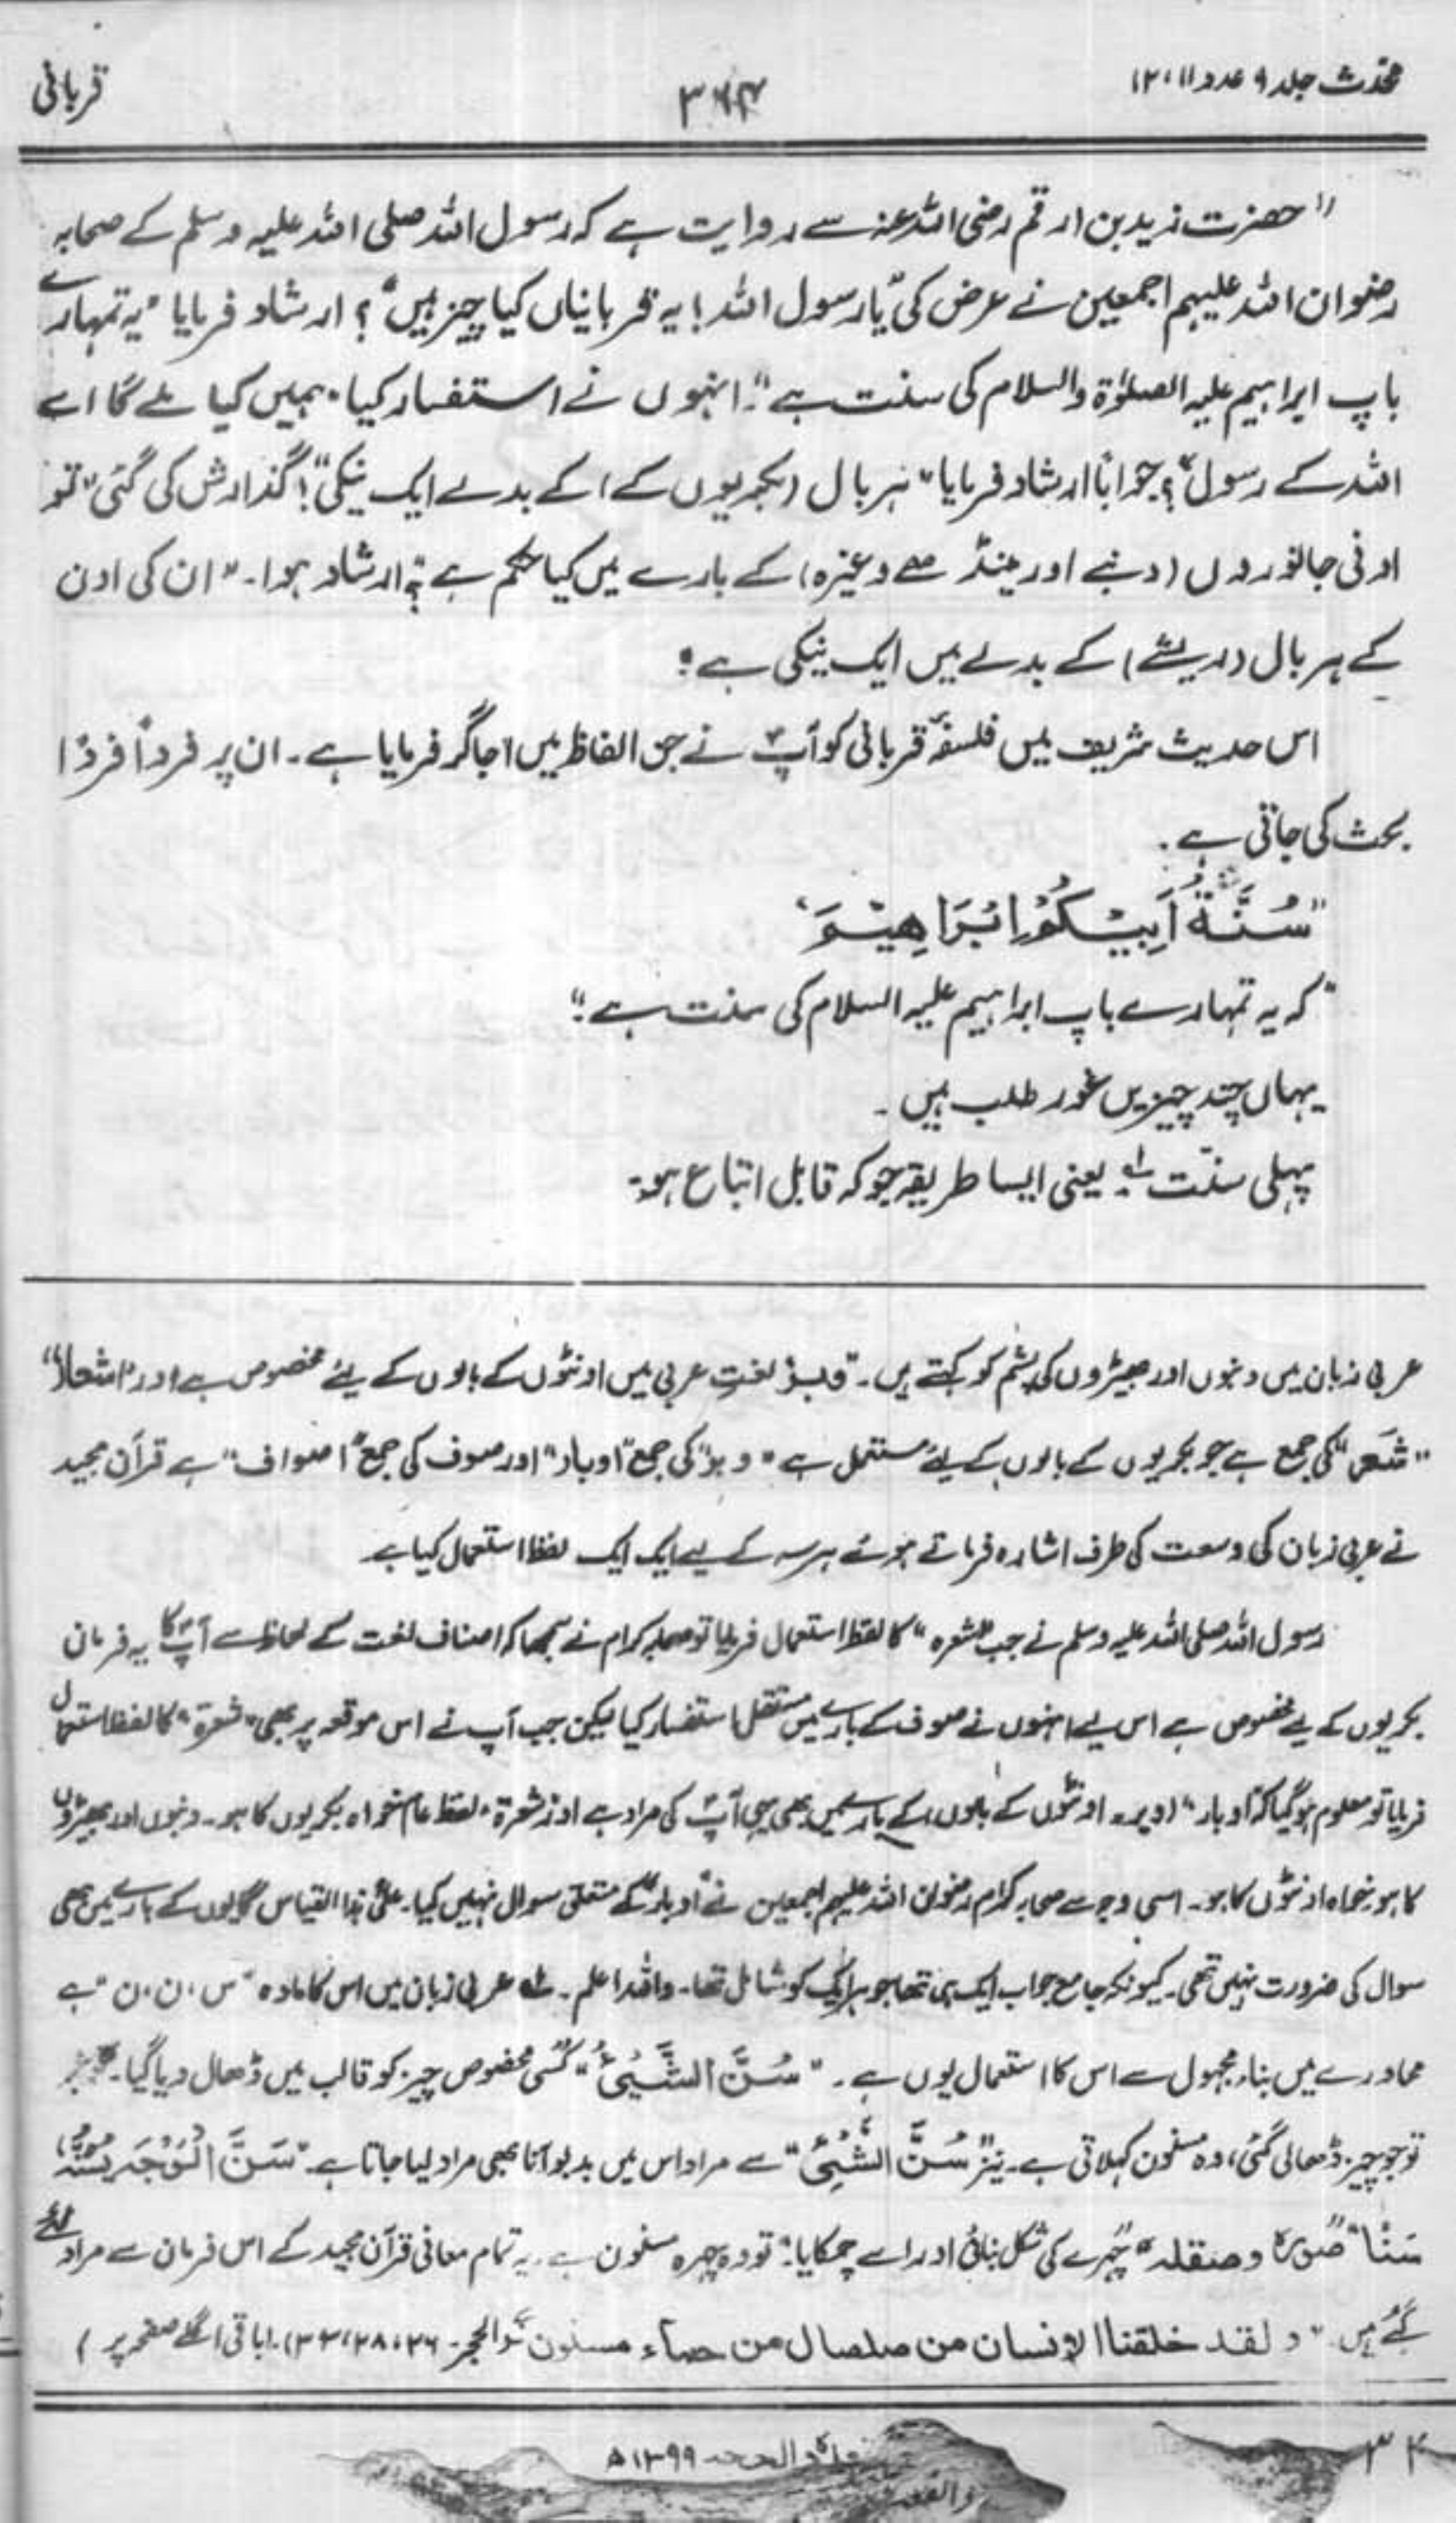 محدث جلد ۹ عدد ۱۲،۱۱
قربانی
"حضرت زید بن ارقم رضی اللہ عنہ سے روایت ہے کہ رسول اللہ صلی اللہ علیہ وسلم کے صحابہ
رضوان اللہ علیہم اجمعین نے عرض کی "یا رسول اللہ! یہ قربانیاں کیا چیز ہیں"؟ ارشاد فرمایا "یہ تمہارے
باپ ابراہیم علیہ الصلوٰۃ والسلام کی سنت ہے"۔ انہوں نے استفسار کیا "ہمیں کیا ملے گا اے
اللہ کے رسول"؟ جواباً ارشاد فرمایا "ہر بال (بکریوں کے) کے بدلے ایک نیکی"! گذارش کی گئی "تو
اونی جانوروں (دنبے اور مینڈھے وغیرہ) کے بارے میں کیا حکم ہے"؟ ارشاد ہوا۔ "ان کی اون
کے ہر بال (ریشے) کے بدلے میں ایک نیکی ہے"!
اس حدیث شریف میں فلسفۂ قربانی کو آپؐ نے جن الفاظ میں اجاگر فرمایا ہے۔ ان پر فرداً فرداً
بحث کی جاتی ہے۔
"سُنَّةُ أَبِيْكُمْ اِبْرَاهِيْمَ"
"کہ یہ تمہارے باپ ابراہیم علیہ السلام کی سنت ہے!"
یہاں چند چیزیں غور طلب ہیں۔
پہلی سنّت لہ یعنی ایسا طریقہ جو کہ قابل اتباع ہو۔
عربی زبان میں دنبوں اور بھیڑوں کی پشم کو کہتے ہیں۔ "وبر" لغتِ عربی میں اونٹوں کے بالوں کے لیے مخصوص ہے اور "اشعار"
"شَعر" کی جمع ہے جو بکریوں کے بالوں کے لیے مستعمل ہے "وبر" کی جمع "اوبار" اور صوف کی جمع "اصواف" ہے قرآن مجید
نے عربی زبان کی وسعت کی طرف اشارہ فرماتے ہوئے ہر سہ کے لیے ایک ایک لفظ استعمال کیا ہے
رسول اللہ صلی اللہ علیہ وسلم نے جب "شعرہ" کا لفظ استعمال فرمایا تو صحابہ کرام نے سمجھا کہ اصناف لغت کے لحاظ سے آپؐ کا یہ فرمان
بکریوں کے لیے مخصوص ہے اس لیے انہوں نے صوف کے بارے میں مستقل استفسار کیا لیکن جب آپ نے اس موقعہ پر بھی "شعرۃ" کا لفظ استعمال
فرمایا تو معلوم ہو گیا کہ "اوبار" (وبر۔ اونٹوں کے بالوں) کے بارے میں بھی یہی آپؐ کی مراد ہے اور "شعرۃ" لفظ عام خواہ بکریوں کا ہو۔ دنبوں اور بھیڑوں
کا ہو خواہ اونٹوں کا ہو۔ اسی وجہ سے صحابہ کرام رضوان اللہ علیہم اجمعین نے "اوبار" کے متعلق سوال نہیں کیا۔ علیٰ ہذا القیاس گایوں کے بارے میں بھی
سوال کی ضرورت نہیں تھی۔ کیونکہ جامع جواب ایک ہی تھا جو ہر ایک کو شامل تھا۔ واللہ اعلم۔ لہ عربی زبان میں اس کا مادہ "س، ن، ن" ہے
محاورے میں بناء مجہول سے اس کا استعمال یوں ہے۔ "سُنَّ الشَّيْئُ" کسی مخصوص چیز کو قالب میں ڈھال دیا گیا۔
تو جو چیز ڈھالی گئی، وہ مسنون کہلاتی ہے۔ نیز "سُنَّ الشَّيْئُ" سے مراد اس میں بدبو آنا بھی مراد لیا جاتا ہے۔ "سَنَّ الْوَجْهَ يَسُنُّهُ"
سَنًّا "صوره وصقله" "چہرے کی شکل بنائی اور اسے چمکایا" تو وہ چہرہ مسنون ہے۔ یہ تمام معانی قرآن مجید کے اس فرمان سے مراد لئے
گئے ہیں۔ "ولقد خلقنا الانسان من صلصال من حمآء مسنون" (الحجر۔ ۲۶، ۲۸، ۳۳)۔ (باقی اگلے صفحہ پر)
۳۲
والقعدہ ذوالحجہ ۱۳۹۹ھ